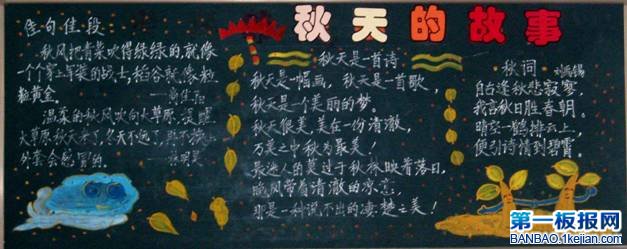 秋天的故事
佳句佳段
秋风把青菜吹得绿绿的就像
一个个穿军装的战士，稻谷就像粒
粒黄金。
温柔的秋风吹向大草原，没睡
大草原秋天来了，冬天不远了，再不换
外套会感冒的。
秋天是一首诗
秋天是一幅画，秋天是一首歌，
秋天是一个美丽的梦。
秋天很美，美在一份清澈，
万美之中秋为最美！
最迷人的莫过于秋林映着落日，
晚风带着清澈的凉意，
那是一种说不出的凄楚之美！
秋词 刘禹锡
自古逢秋悲寂寥，
我言秋日胜春朝。
晴空一鹤排云上，
便引诗情到碧霄。
第一板报网
BANBAO.1kejian.com